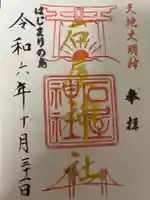 天地大明神
奉拝
石屋神社
石屋
神社
はじまりの島
令和六年十月三十一日